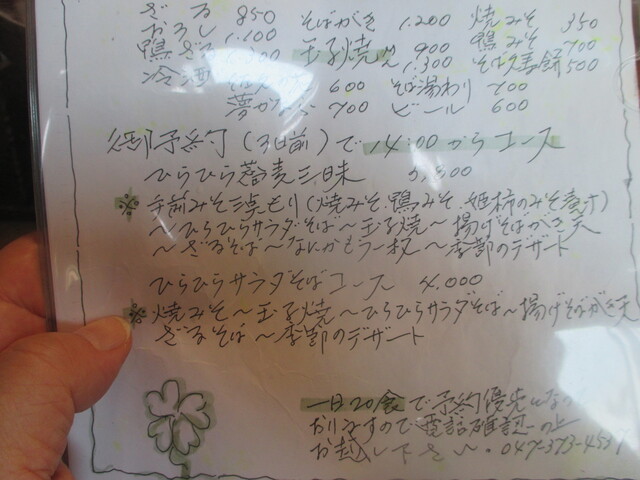 ざる 850 そばがき 1.200 焼みそ 350
おろし 1.100 玉子焼 900 鴨みそ 700
鴨ざる 1.300 1.300 そば焼餅 500
冷酒 600 そば湯わり 700
700 ビール 600
御予約(3日前)で 14:00からコース
ひらひら蕎麦三昧
※ 手前みそ三点もり(焼みそ、鴨みそ、姫柿のみそ寿オ)
～ひらひらサラダそば～玉子焼～揚げそばがき天
～ざるそば～なにかもう一枚～季節のデザート
ひらひらサラダそばコース 4.000
※ 焼みそ～玉子焼～ひらひらサラダそば～揚げそばがき天
ざるそば～季節のデザート
一日20食で予約優先になって
おりますので電話確認の上
お越し下さい～。047-373-4537